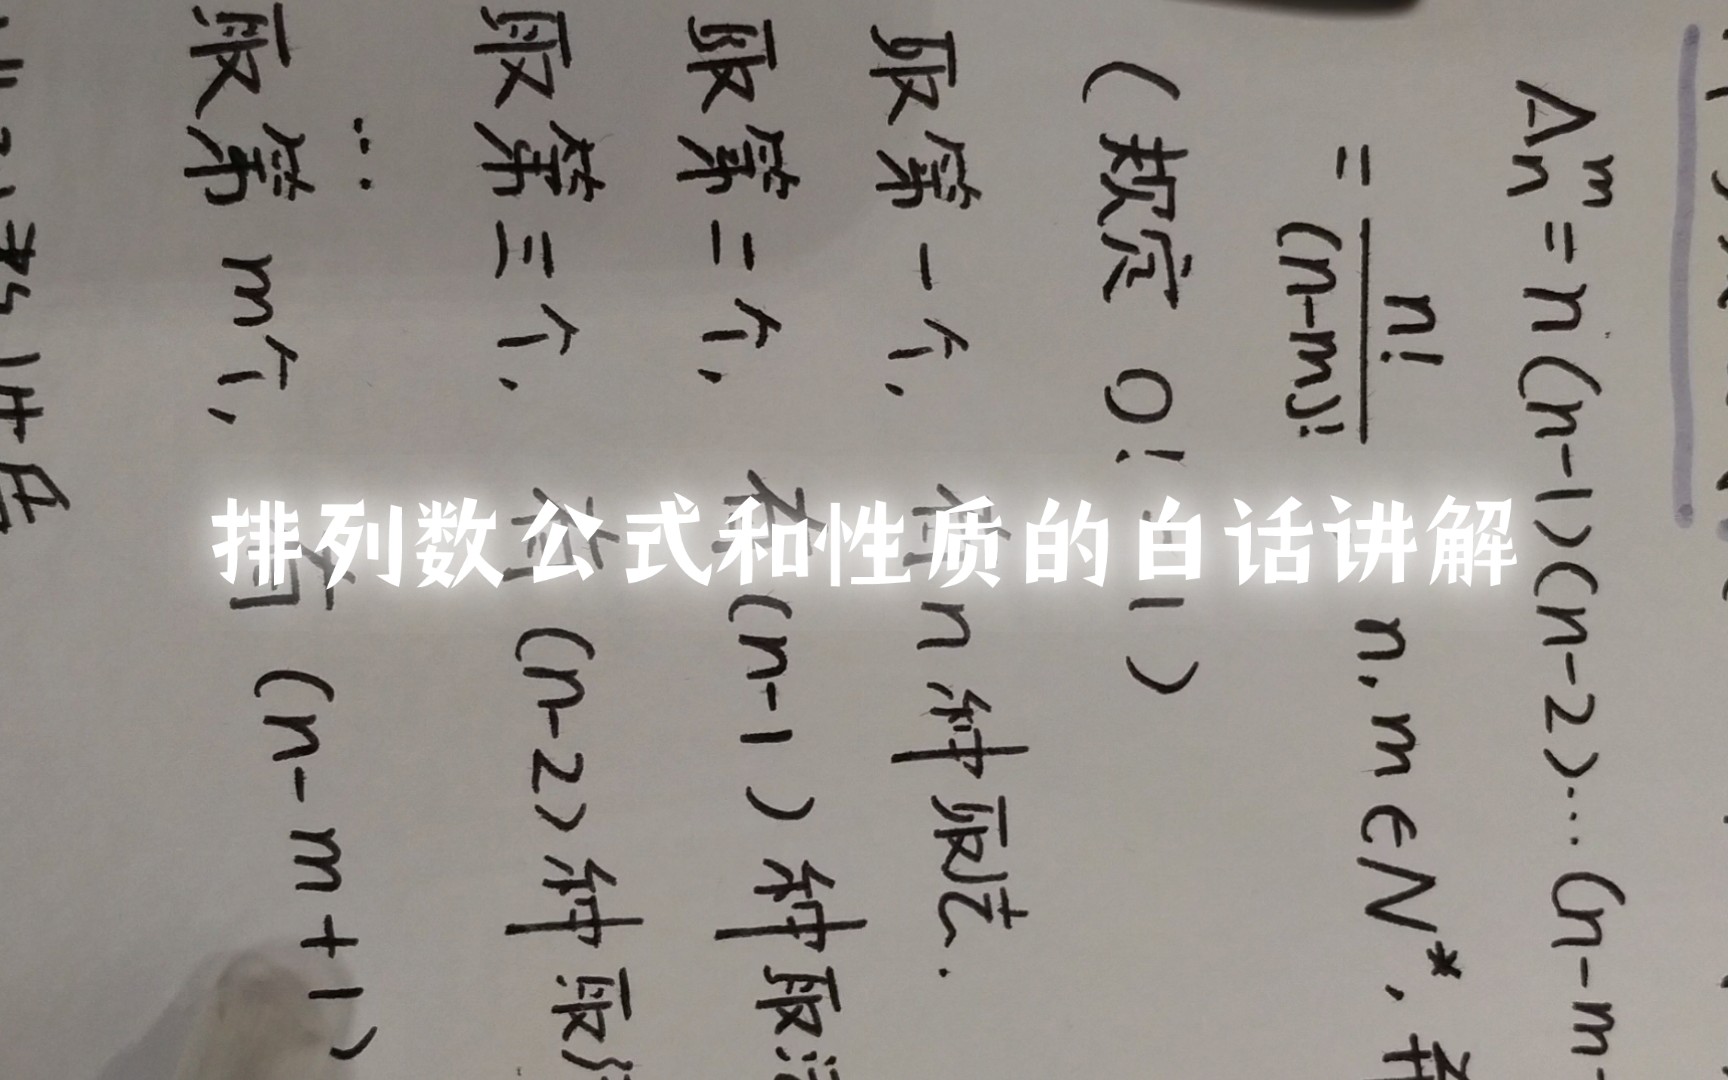 A_n^m = n(n-1)(n-2)…(n-m
= n!/(n-m)! n,m∈N*,
(规定 0! 1)
取第一个, 有n种取法.
取第二个, 有(n-1)种取法
取第三个, 有(n-2)种取
…
取第m个, 有(n-m+1)
排列数公式和性质的白话讲解